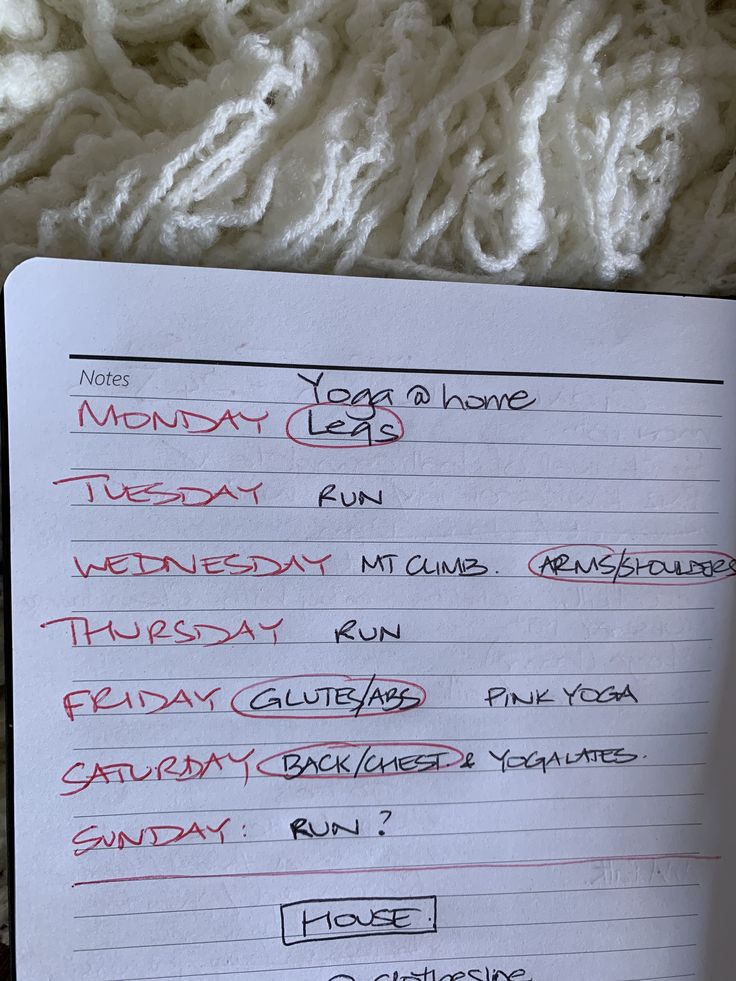 Notes
Yoga @ home
MONDAY Legs
TUESDAY RUN
WEDNESDAY MT CLIMB. ARMS/SHOULDERS
THURSDAY RUN
FRIDAY GLUTES/ABS PINK YOGA
SATURDAY BACK/CHEST & YOGALATES.
SUNDAY: RUN?
HOUSE.
clothesline